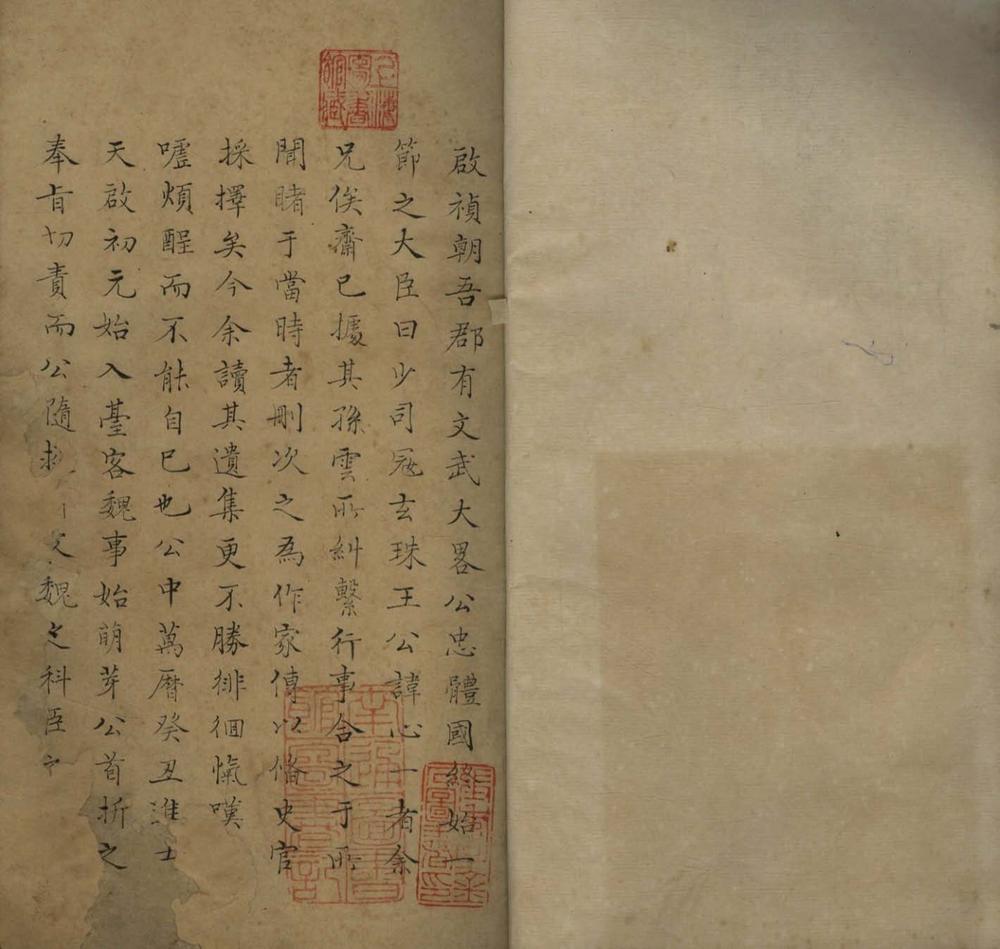 啟禎朝吾郡有文武大畧公忠體國終始一
節之大臣曰少司冦玄珠王公諱心一者余
兄俟齋已據其孫雲所糾繫行事合之于所
聞睹于當時者刪次之為作家傳以備史官
採擇矣今余讀其遺集更不勝徘徊愾嘆
噓煩酲而不能自已也公中萬曆癸丑進士
天啟初元始入臺客魏事始萌芽公首折之
奉旨切責而公隨 魏之科臣